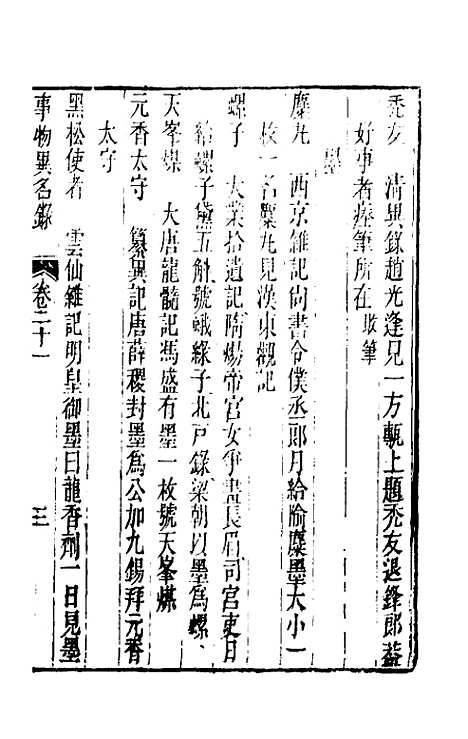 禿友　清異錄趙光逢見一方甎上題禿友退鋒郎蓋
好事者瘞筆所在敗筆
墨
麋丸　西京雜記尚書令僕丞郎月給隃麋墨大小一
枚一名麋丸見漢東觀記
螺子　大業拾遺記隋煬帝宮女爭畫長眉司宮吏日
給螺子黛五斛號蛾綠子北戸錄梁朝以墨爲螺、
天峯煤　大唐龍髓記馮盛有墨一枚號天峯煤
元香太守　纂異記唐薛稷封墨爲公加九錫拜元香
太守
黑松使者　雲仙雜記明皇御墨曰龍香劑一日見墨
事物異名錄　卷二十一　三